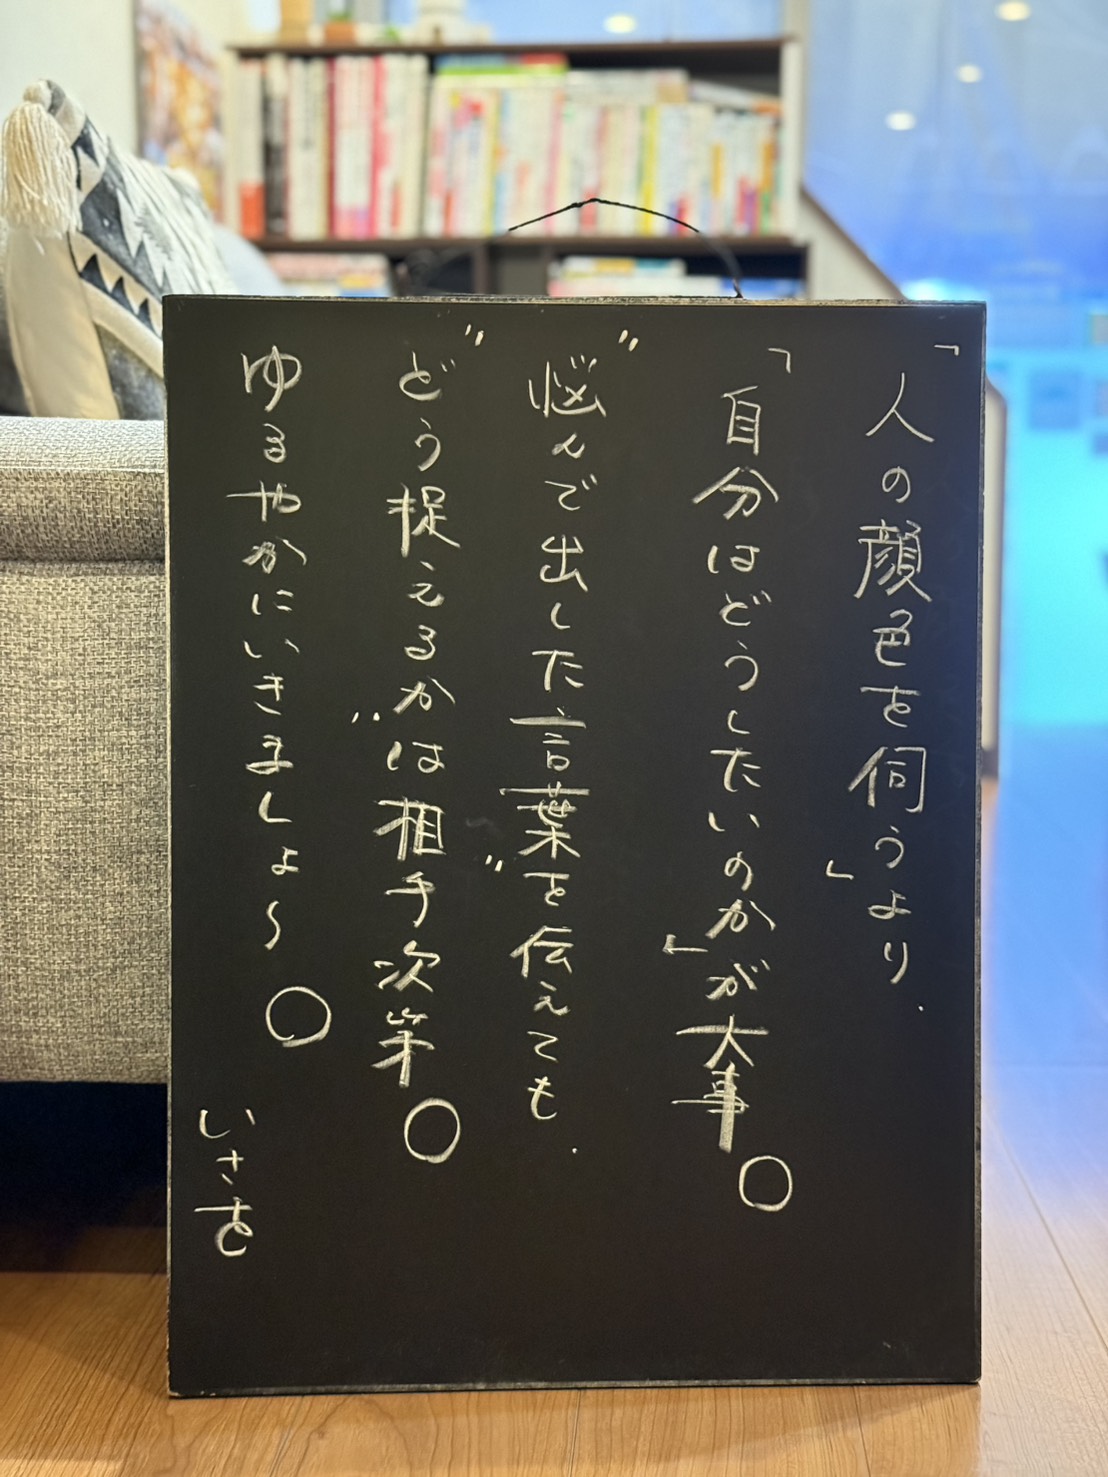 「人の顔色を伺う」より.
「自分はどうしたいのか」が大事○
"悩んで出した言葉"を伝えても.
"どう捉えるか"は相手次第○
ゆるやかにいきましょ〜○
いさを